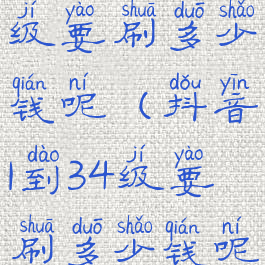 jí yào shuā duō shǎo
级要刷多少
qián ní dǒu yīn
钱呢(抖音
dào jí yào
1到34级要
shuā duō shǎo qián ní
刷多少钱呢